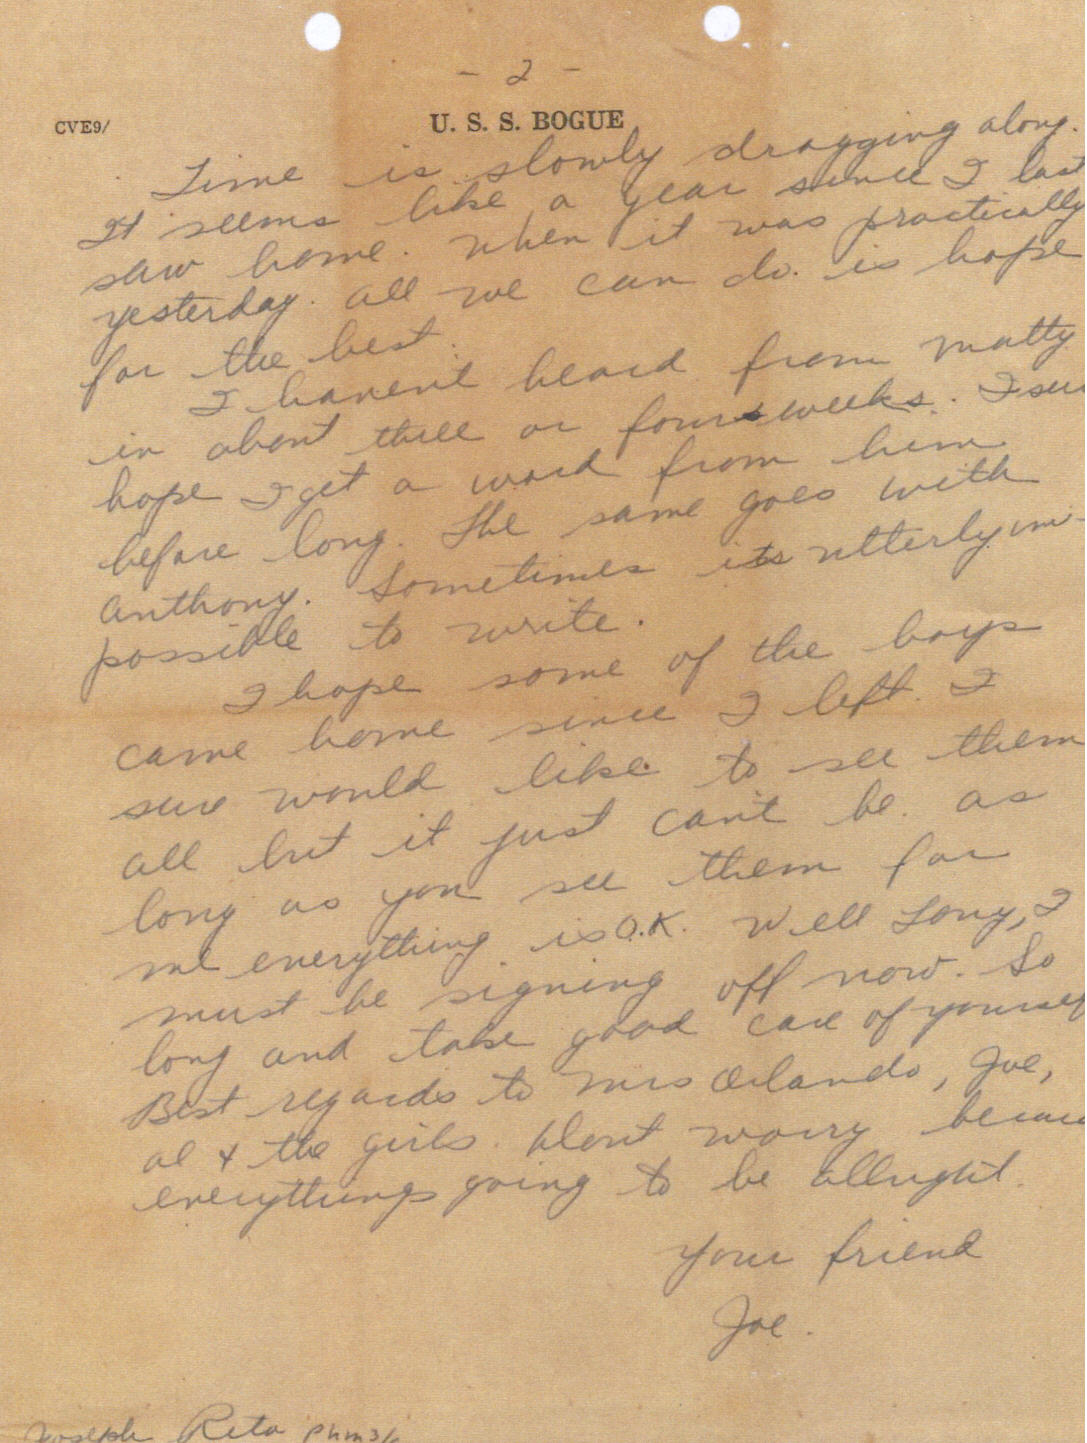 - 2 -
CVE9/
U. S. S. BOGUE
Time is slowly dragging along.
It seems like a year since I last
saw home. When it was practically
yesterday. All we can do. is hope
for the best.
I haven't heard from Matty
in about three or four weeks. I su
hope I get a word from him
before long. The same goes with
Anthony. Sometimes its utterly im-
possible to write.
I hope some of the boys
came home since I left. I
sure would like to see them
all but it just can't be. as
long as you see them for
me everything is O.K. Well Tony, I
must be signing off now. So
long and take good care of yourself
Best regards to Mrs Orlando, Joe,
al & the girls. Don't worry becau
everythings going to be allright.
Your friend
Joe.
Joseph Reta PhM3/c